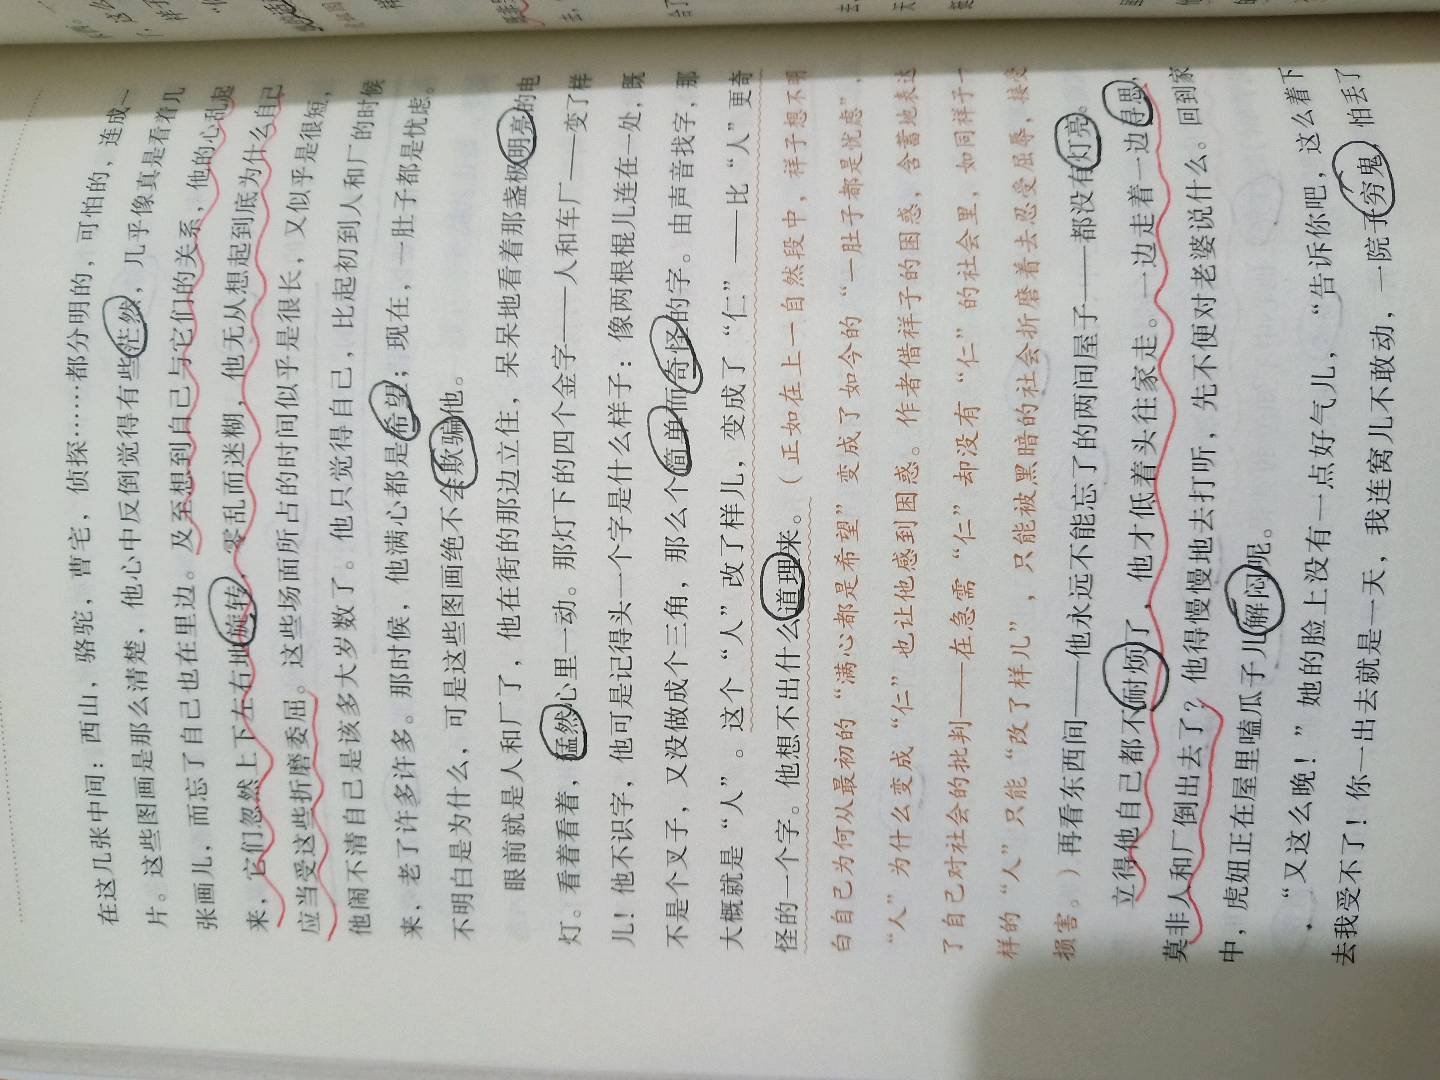 在这几张中间：西山，骆驼，曹宅，侦探……都分明的，可怕的，连成一
片。这些图画是那么清楚，他心中反倒觉得有些茫然，几乎像真是看着几
张画儿，而忘了自己也在里边。及至想到自己与它们的关系，他的心乱起
来，它们忽然上下左右地旋转，零乱而迷糊，他无从想起到底为什么自己
应当受这些折磨委屈。这些场面所占的时间似乎是很长，又似乎是很短，
他闹不清自己是该多大岁数了。他只觉得自己，比起初到人和厂的时候
来，老了许多许多。那时候，他满心都是希望；现在，一肚子都是忧虑。
不明白是为什么，可是这些图画绝不会欺骗他。
眼前就是人和厂了，他在街的那边立住，呆呆地看着那盏极明亮的电
灯。看着看着，猛然心里一动。那灯下的四个金字——人和车厂——变了样
儿！他不识字，他可是记得头一个字是什么样子：像两根棍儿连在一处，既
不是个叉子，又没做成个三角，那么个简单而奇怪的字。由声音找字，那
大概就是“人”。这个“人”改了样儿，变成了“仁”——比“人”更奇
怪的一个字。他想不出什么道理来。（正如在上一自然段中，祥子想不明
白自己为何从最初的“满心都是希望”变成了如今的“一肚子都是忧虑”，
“人”为什么变成“仁”也让他感到困惑。作者借祥子的困惑，含蓄地表达
了自己对社会的批判——在急需“仁”却没有“仁”的社会里，如同祥子一
样的“人”只能“改了样儿”，只能被黑暗的社会折磨着去忍受屈辱，接受
损害。）再看东西间——他永远不能忘了的两间屋子——都没有灯亮。
立得他自己都不耐烦了，他才低着头往家走。一边走着一边寻思，
莫非人和厂倒出去了？他得慢慢地去打听，先不便对老婆说什么。回到家
中，虎妞正在屋里嗑瓜子儿解闷呢。
“又这么晚！”她的脸上没有一点好气儿，“告诉你吧，这么着下
去我受不了！你一出去就是一天，我连窝儿不敢动，一院子穷鬼，怕丢了